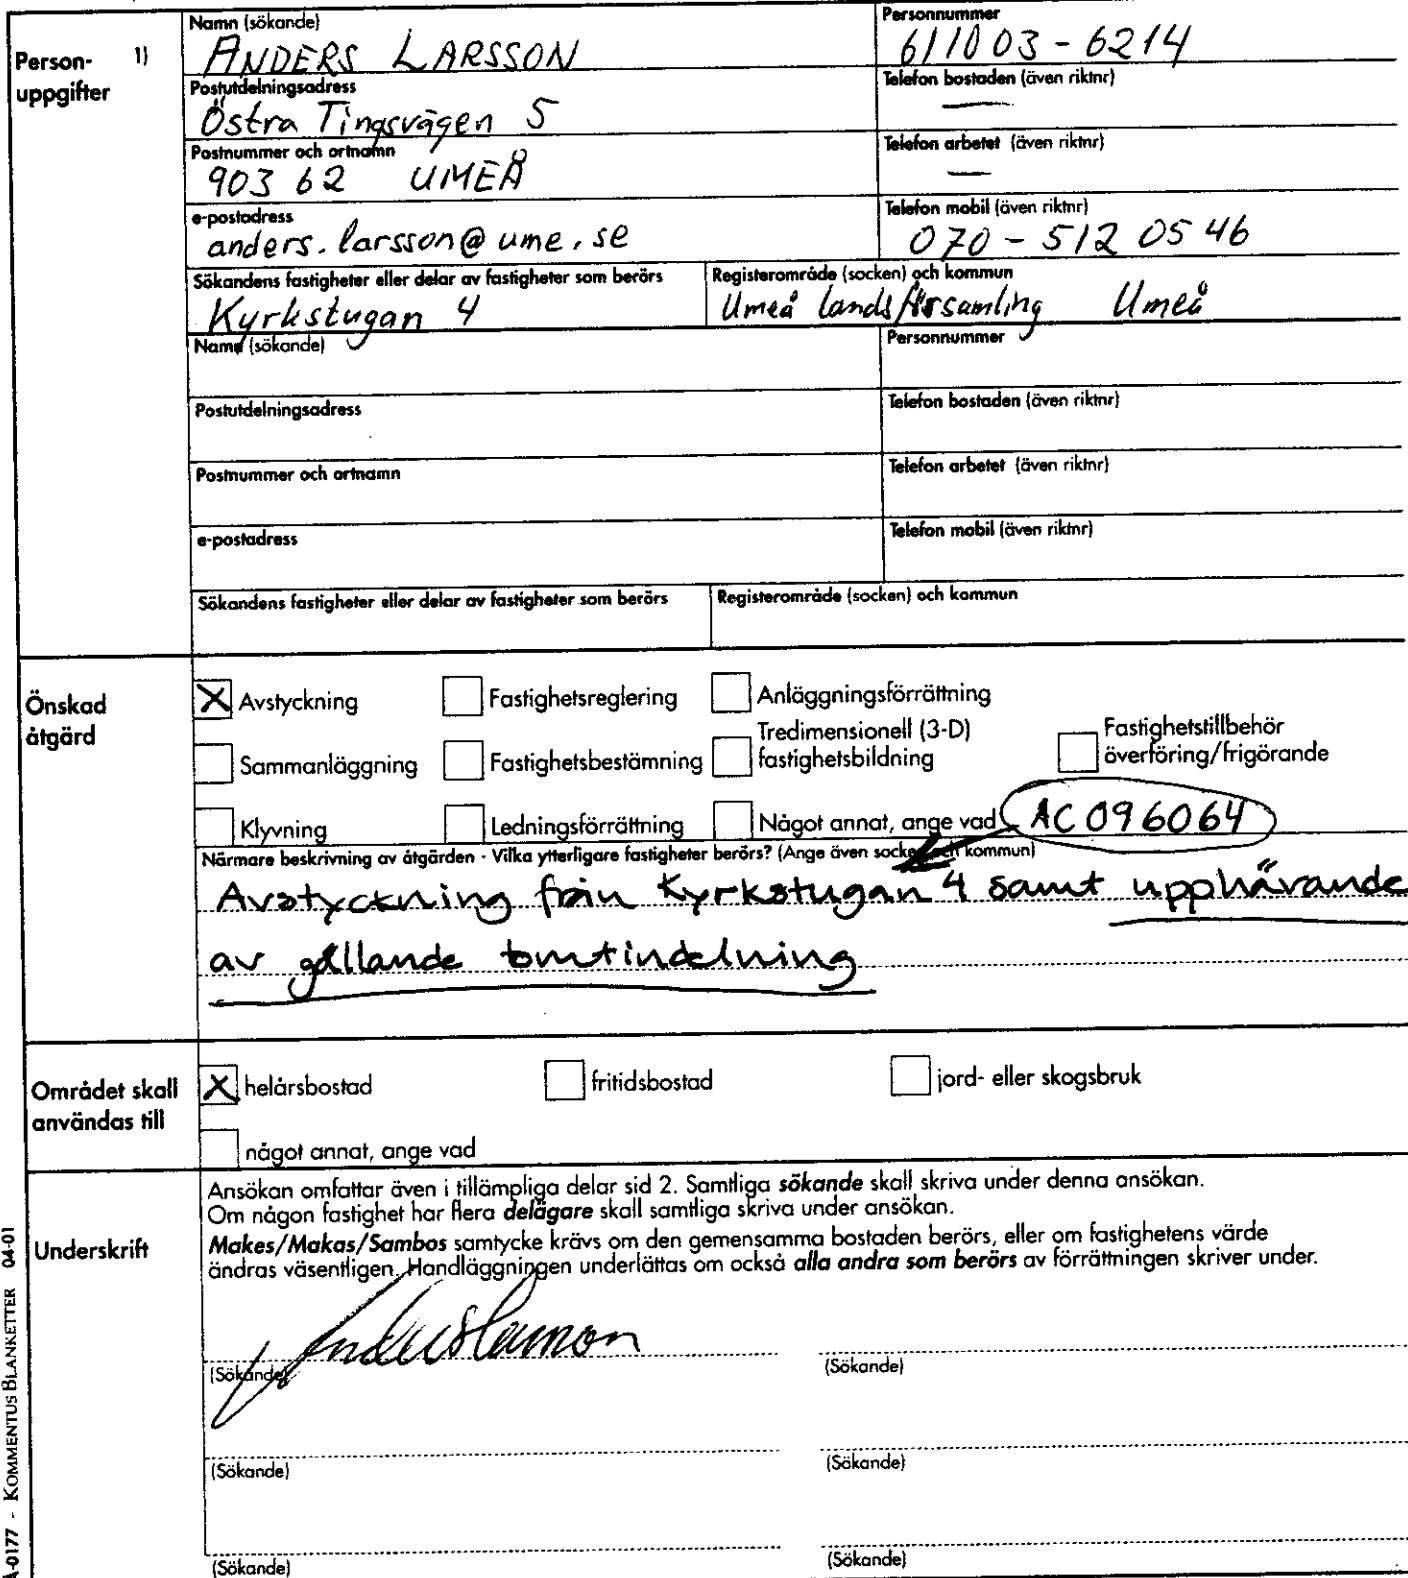 Person-
uppgifter
1)
Namn (sökande)
ANDERS LARSSON
Personnummer
611003-6214
Postutdelningsadress
Östra Tingsvägen 5
Telefon bostaden (även riktnr)
—
Postnummer och ortnamn
903 62 UMEÅ
Telefon arbetet (även riktnr)
—
e-postadress
anders.larsson@ume.se
Telefon mobil (även riktnr)
070-512 05 46
Sökandens fastigheter eller delar av fastigheter som berörs
Kyrkstugan 4
Registerområde (socken) och kommun
Umeå landsförsamling Umeå
Namn (sökande)
Personnummer
Postutdelningsadress
Telefon bostaden (även riktnr)
Postnummer och ortnamn
Telefon arbetet (även riktnr)
e-postadress
Telefon mobil (även riktnr)
Sökandens fastigheter eller delar av fastigheter som berörs
Registerområde (socken) och kommun
Önskad
åtgärd
X Avstyckning
Fastighetsreglering
Anläggningsförrättning
Sammanläggning
Fastighetsbestämning
Tredimensionell (3-D)
fastighetsbildning
Fastighetstillbehör
överföring/frigörande
Klyvning
Ledningsförrättning
Något annat, ange vad
AC096064
Närmare beskrivning av åtgärden - Vilka ytterligare fastigheter berörs? (Ange även socken och kommun)
Avstyckning från Kyrkstugan 4 samt upphävande
av gällande tomtindelning
Området skall
användas till
X helårsbostad
fritidsbostad
jord- eller skogsbruk
något annat, ange vad
Underskrift
Ansökan omfattar även i tillämpliga delar sid 2. Samtliga sökande skall skriva under denna ansökan.
Om någon fastighet har flera delägare skall samtliga skriva under ansökan.
Makes/Makas/Sambos samtycke krävs om den gemensamma bostaden berörs, eller om fastighetens värde
ändras väsentligen. Handläggningen underlättas om också alla andra som berörs av förrättningen skriver under.
Anders Larsson
(Sökande)
(Sökande)
(Sökande)
(Sökande)
(Sökande)
(Sökande)
A-0177 - KOMMENTUS BLANKETTER 04-01